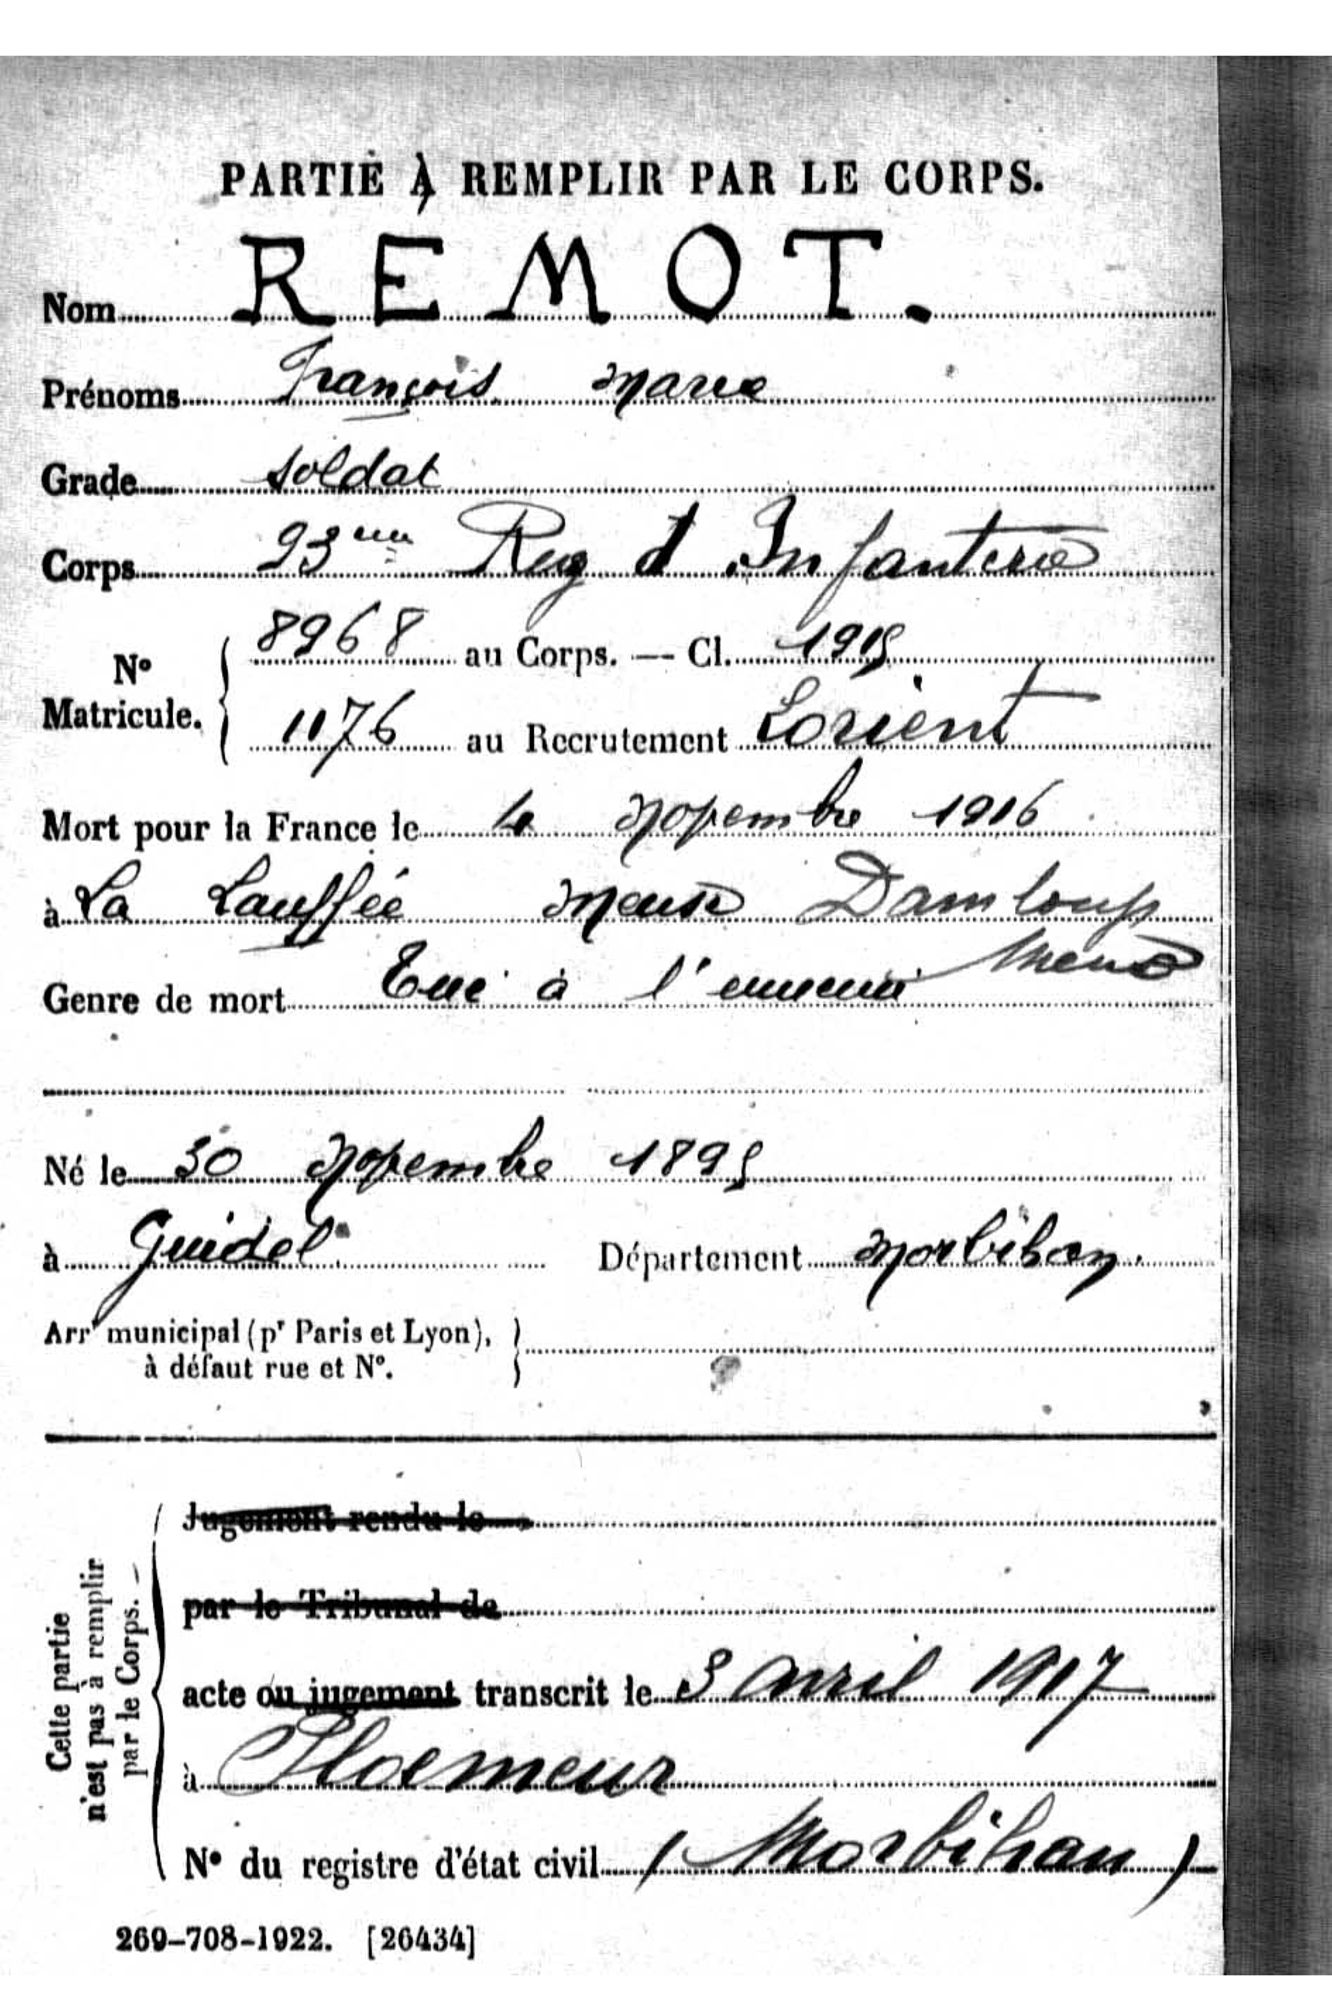 PARTIE À REMPLIR PAR LE CORPS.
Nom REMOT.
Prénoms François Marie
Grade Soldat
Corps 93eme Reg d Infanterie
N° Matricule. 8968 au Corps. — Cl. 1915
1176 au Recrutement Lorient
Mort pour la France le 4 Novembre 1916
à La Lauffée Meuse Damloup
Meuse
Genre de mort Tué à l'ennemi
Né le 30 Novembre 1895
à Guidel Département Morbihan.
Arrt municipal (pr Paris et Lyon),
à défaut rue et N°.
Cette partie
n'est pas à remplir
par le Corps.
Jugement rendu le
par le Tribunal de
acte ou jugement transcrit le 3 avril 1917
à Ploemeur
N° du registre d'état civil (Morbihan)
269-708-1922. [26434]